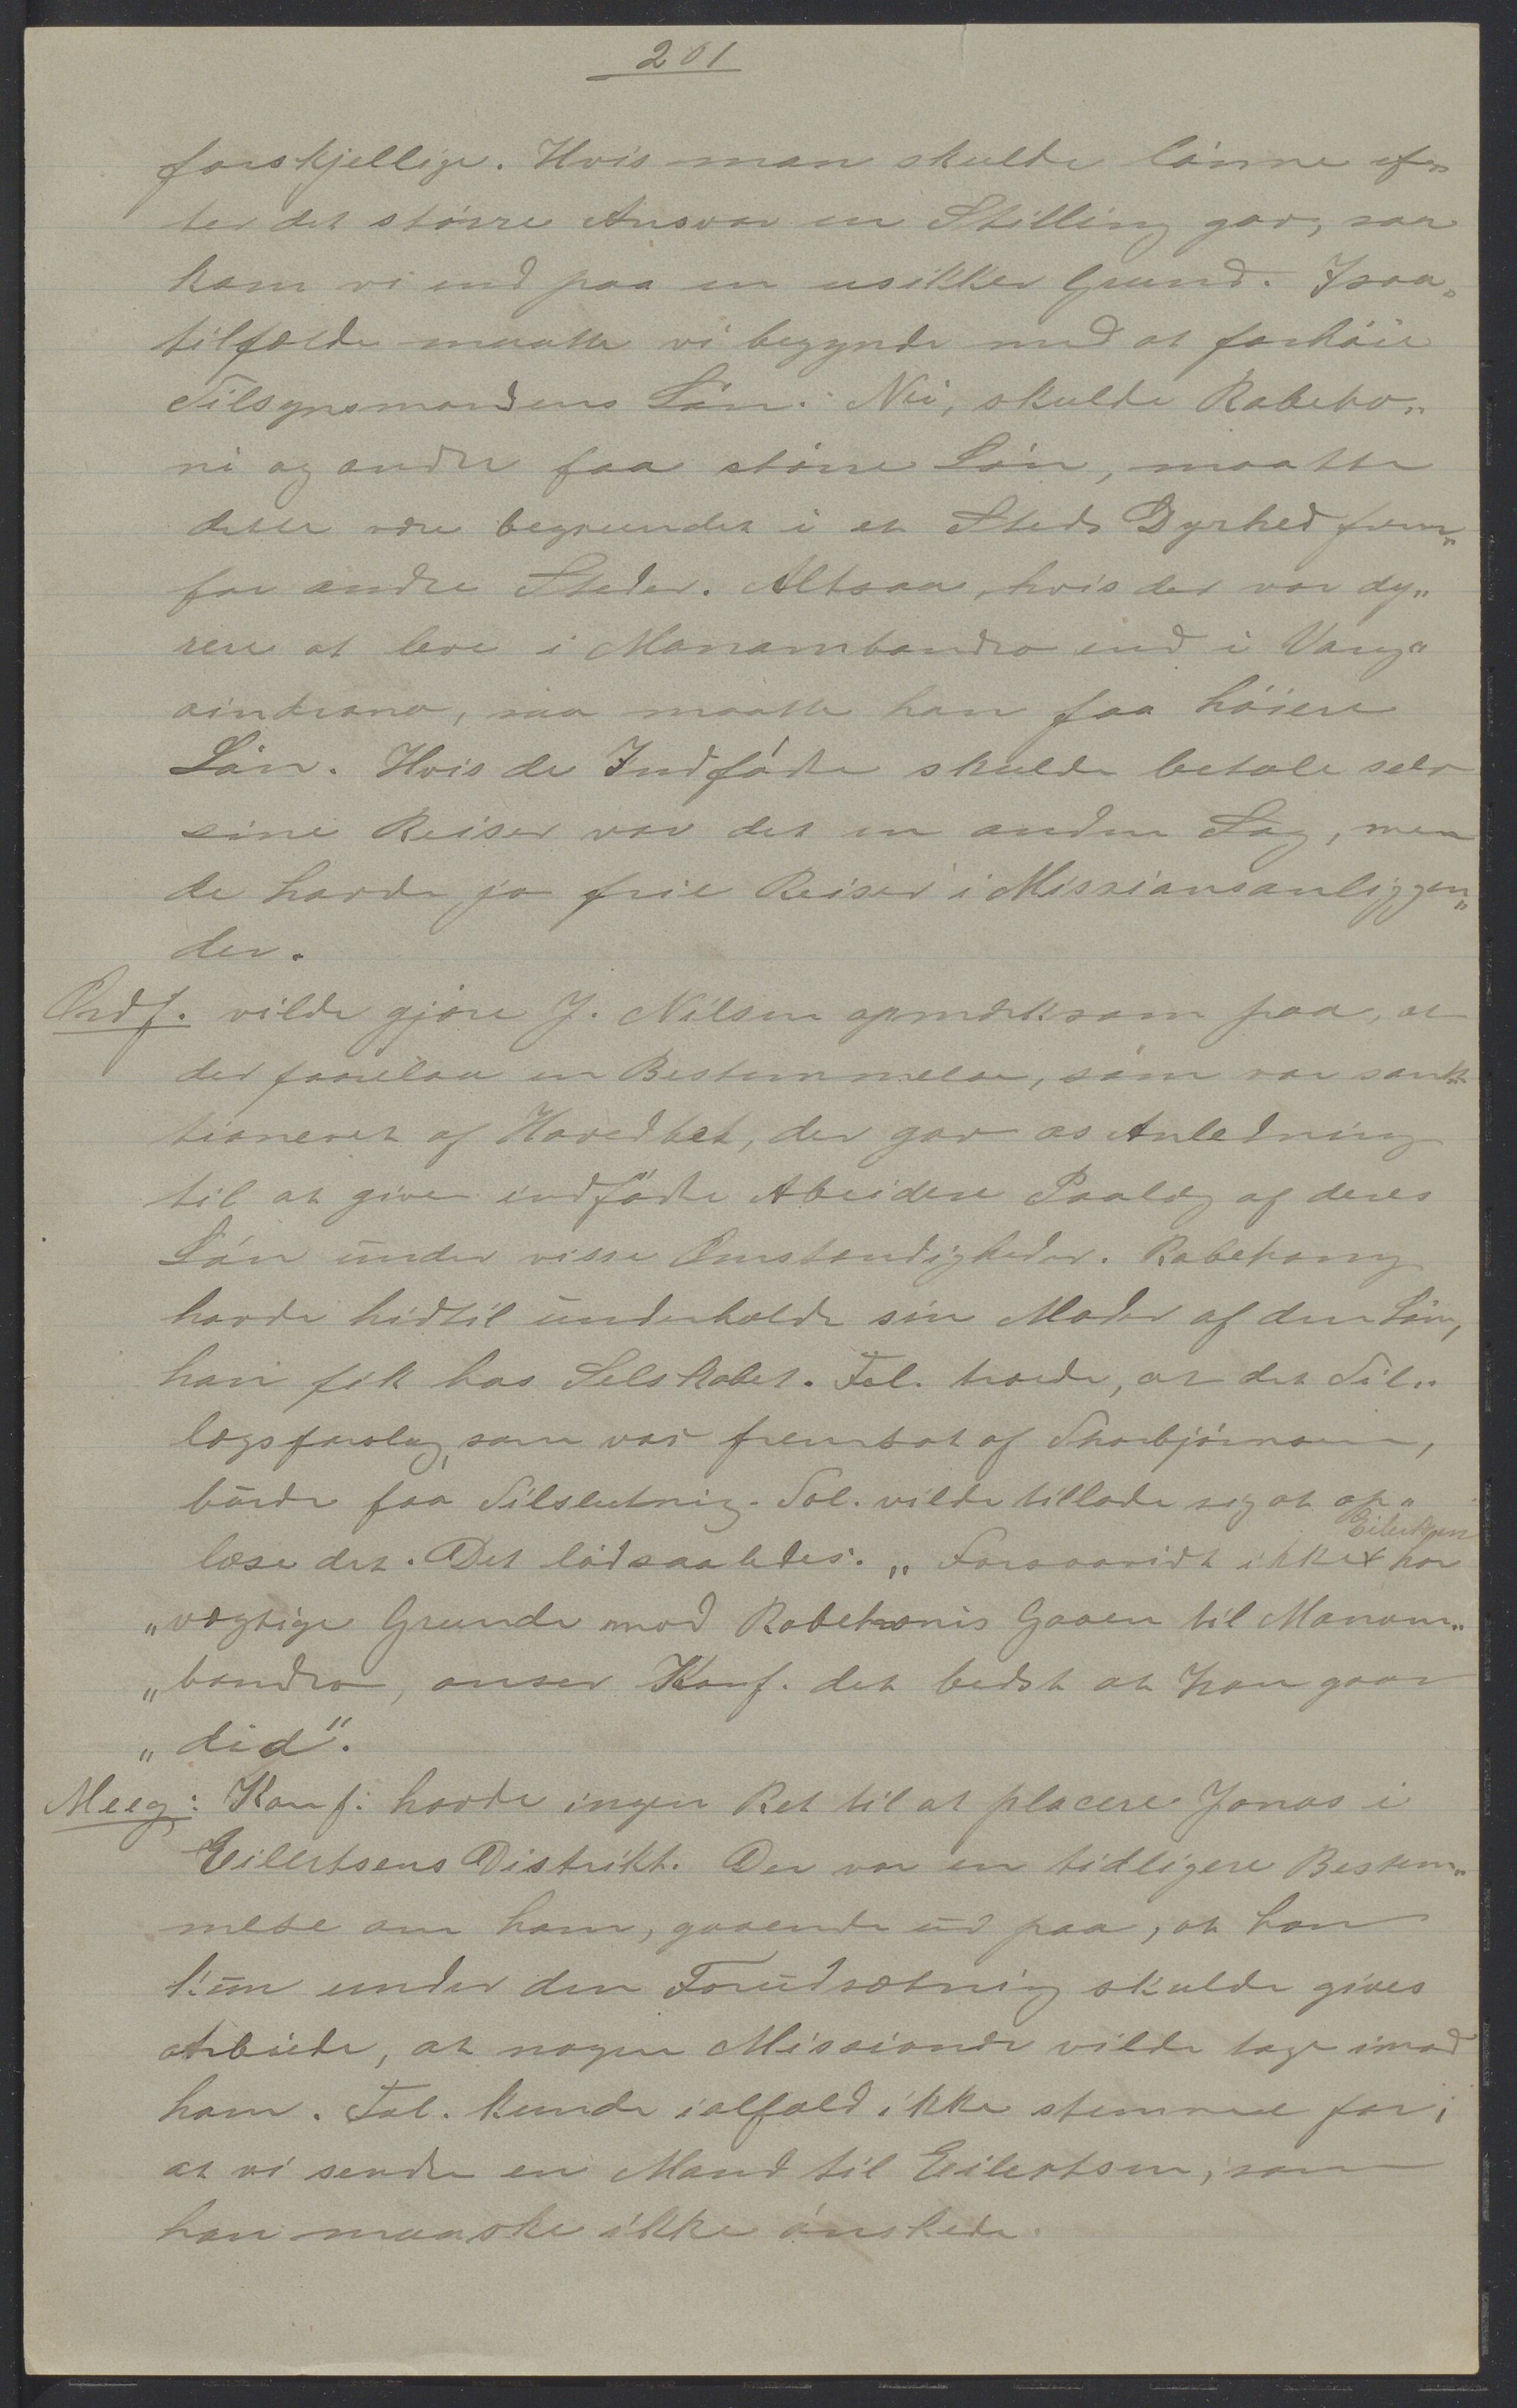 201
forskjellige. Hvis man skulde lönne ef„
ter det större Ansvar en Stilling gav, saa
kom vi ind paa en usikker Grund. Isaa„
tilfælde maatte vi begynde med at forhöie
Tilsynsmandens Lön. Nei, skulde Rabeho„
ni og andre faa större Lön, maatte
dette være begrundet i et Steds Dyrhed frem„
for andre Steder. Altsaa, hvis der var dy„
rere at leve i Manambondro end i Vang„
aindrano, saa maatte han faa höiere
Lön. Hvis de Indfödte skulde betale selv
sine Reiser var det en anden Sag, men
de havde jo frie Reiser i Missionsanliggen„
der.
Ordf. vilde gjöre J. Nilsen opmærksom paa, at
der forelaa en Bestemmelse, som var sank„
tioneret af Hovedbst, der gav os Anledning
til at give indfödte Abeidere Paalæg af deres
Lön under visse Omstændigheder. Rabehony
havde hidtil underholdt sin Moder af den Lön,
han fik hos Selskabet. Tal. troede, at det Til„
lægsforslag, som var fremsat af Thorbjörnsen,
burde faa Tilslutnig. Tal. vilde tillade sig at op„
læse det. Det löd saaledes: „Forsaavidt ikke Eilertsen har
„vægtige Grunde mod Rabehonis Gaaen til Manam„
„bondro, anser Konf. det bedst at han gaar
„did".
Meeg: Konf. havde ingen Ret til at placere Jonas i
Eilertsens Distrikt. Der var en tidligere Bestem„
melse om ham, gaaende ud paa, at han
kun under den Forudsætnig skulde gives
Arbeide, at nogen Missionær vilde tage imod
ham. Tal. kunde ialfald ikke stemme for,
at vi sendte en Mand til Eilertsen, som
han maaske ikke önskede.